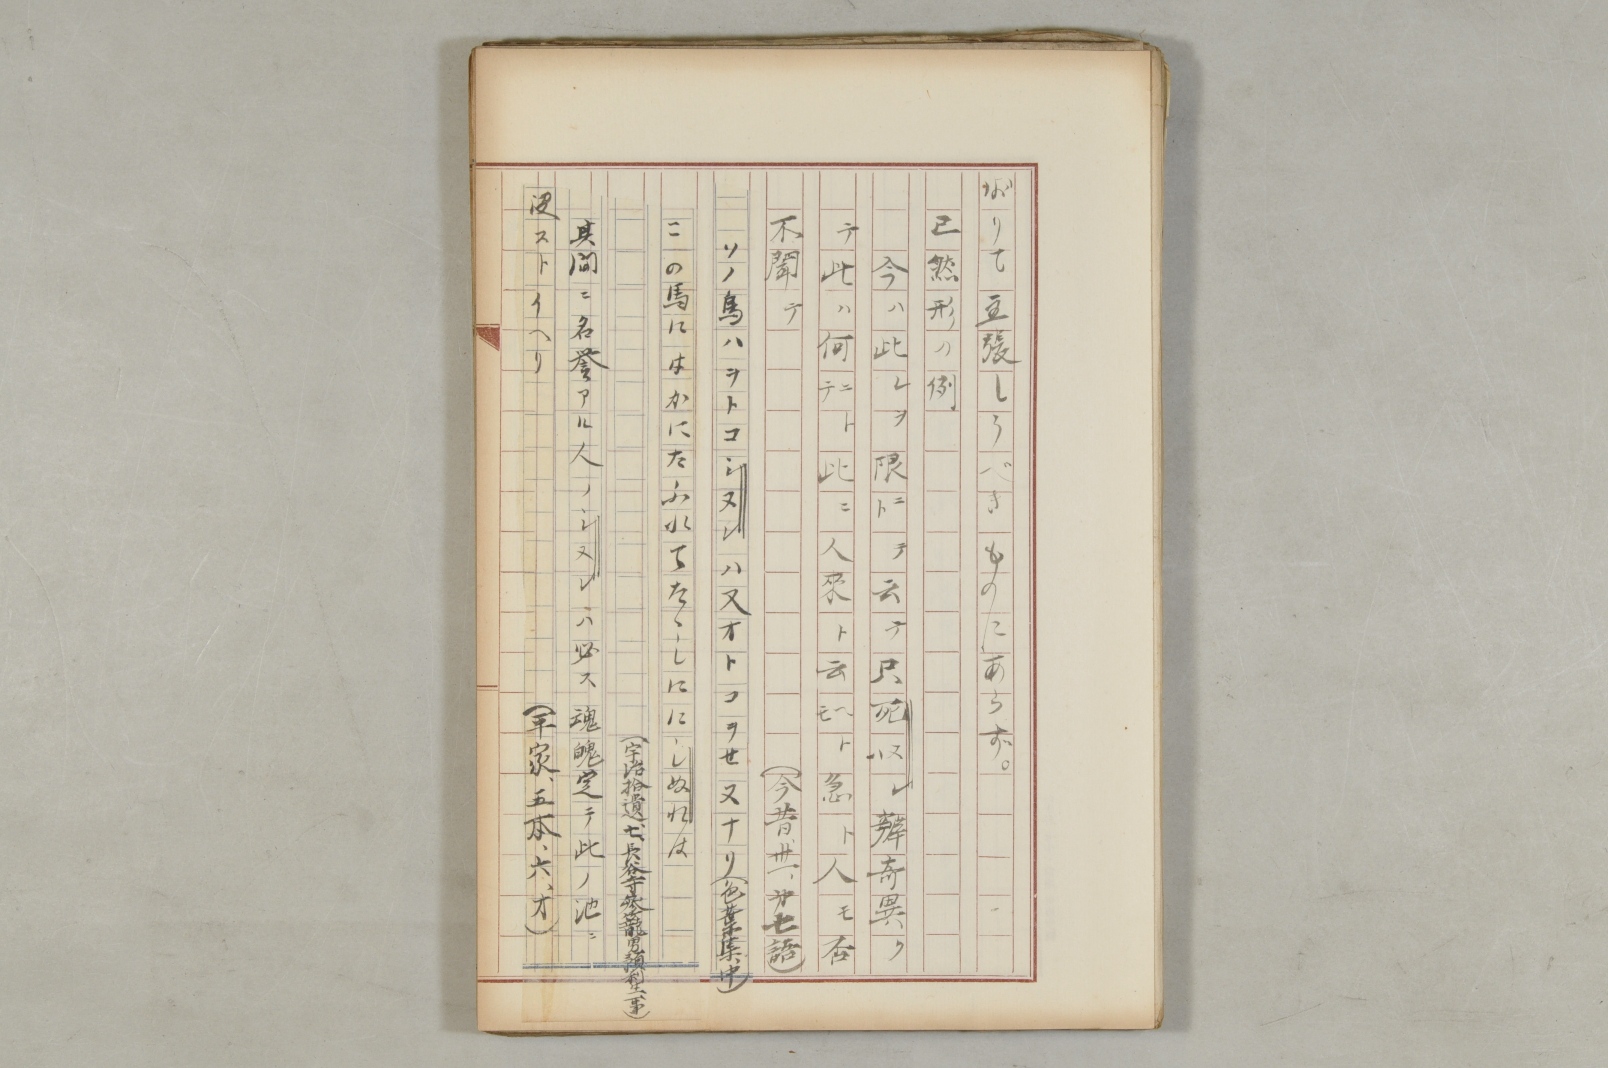 がりて主張しうべきものにあらず。
已然形の例
今ハ此レヲ限ニトテ云テ只死ヌレ辨奇異ク
テ此ハ何ニテト此ニ人來ト云ヘモト急ト人モ否
不聞テ（今昔卅一、廿七語）
ソノ鳥ハヲトコシヌレハ又オトコヲセヌナリ（色葉集、中）
この馬にはかにたふれてたゝしににしぬれは
（宇治拾遺、七、長谷寺參籠男預利生事）
其間ニ名誉アル人ノシヌレハ必ス魂魄定テ此ノ池ニ
没ストイヘリ（平家、五本、六、オ）